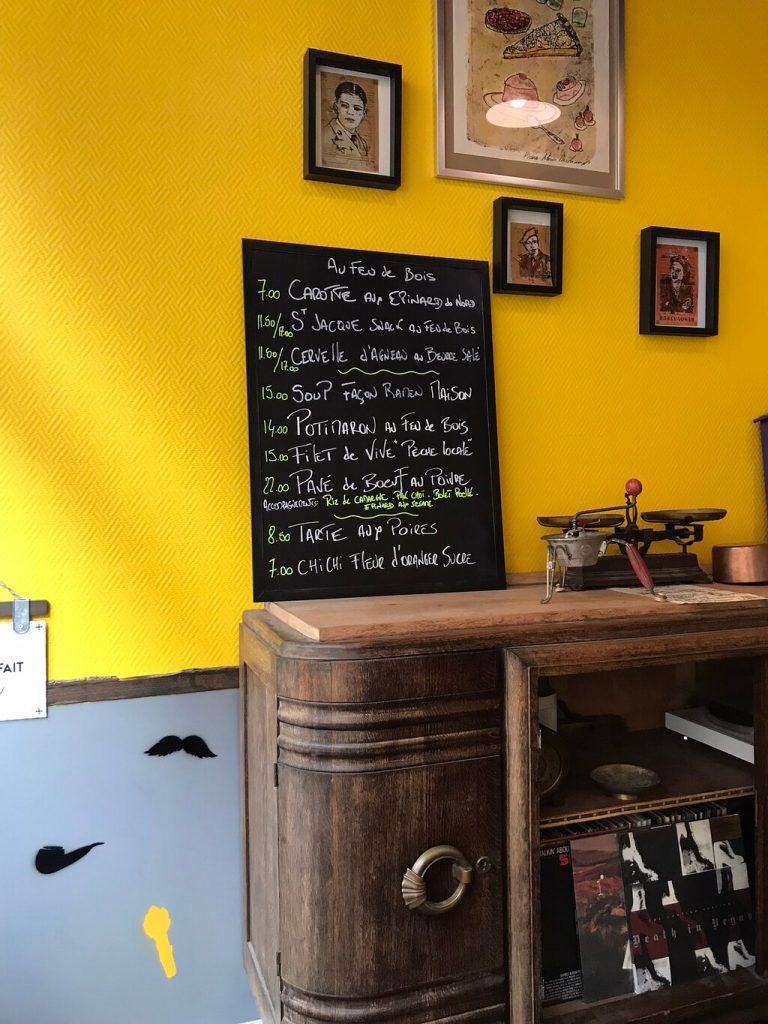 Au Feu de Bois
7.00 Carotte aux Epinard du Nord
11.50/17.00 St Jacque Snack au Feu de Bois
11.50/17.00 Cervelle d'Agneau au Beurre Salé
15.00 Soup Façon Ramen Maison
14.00 Potimaron au Feu de Bois
15.00 Filet de Vive "Pêche locale"
22.00 Pavé de Boeuf au Poivre
Accompagnements: Riz de Camargue. Pak Choi.
Epinard aux Sesame
8.50 Tarte aux Poires
7.00 Chichi Fleur d'oranger Sucre
FAIT
TALKIN' ABOU
Death in Vegas